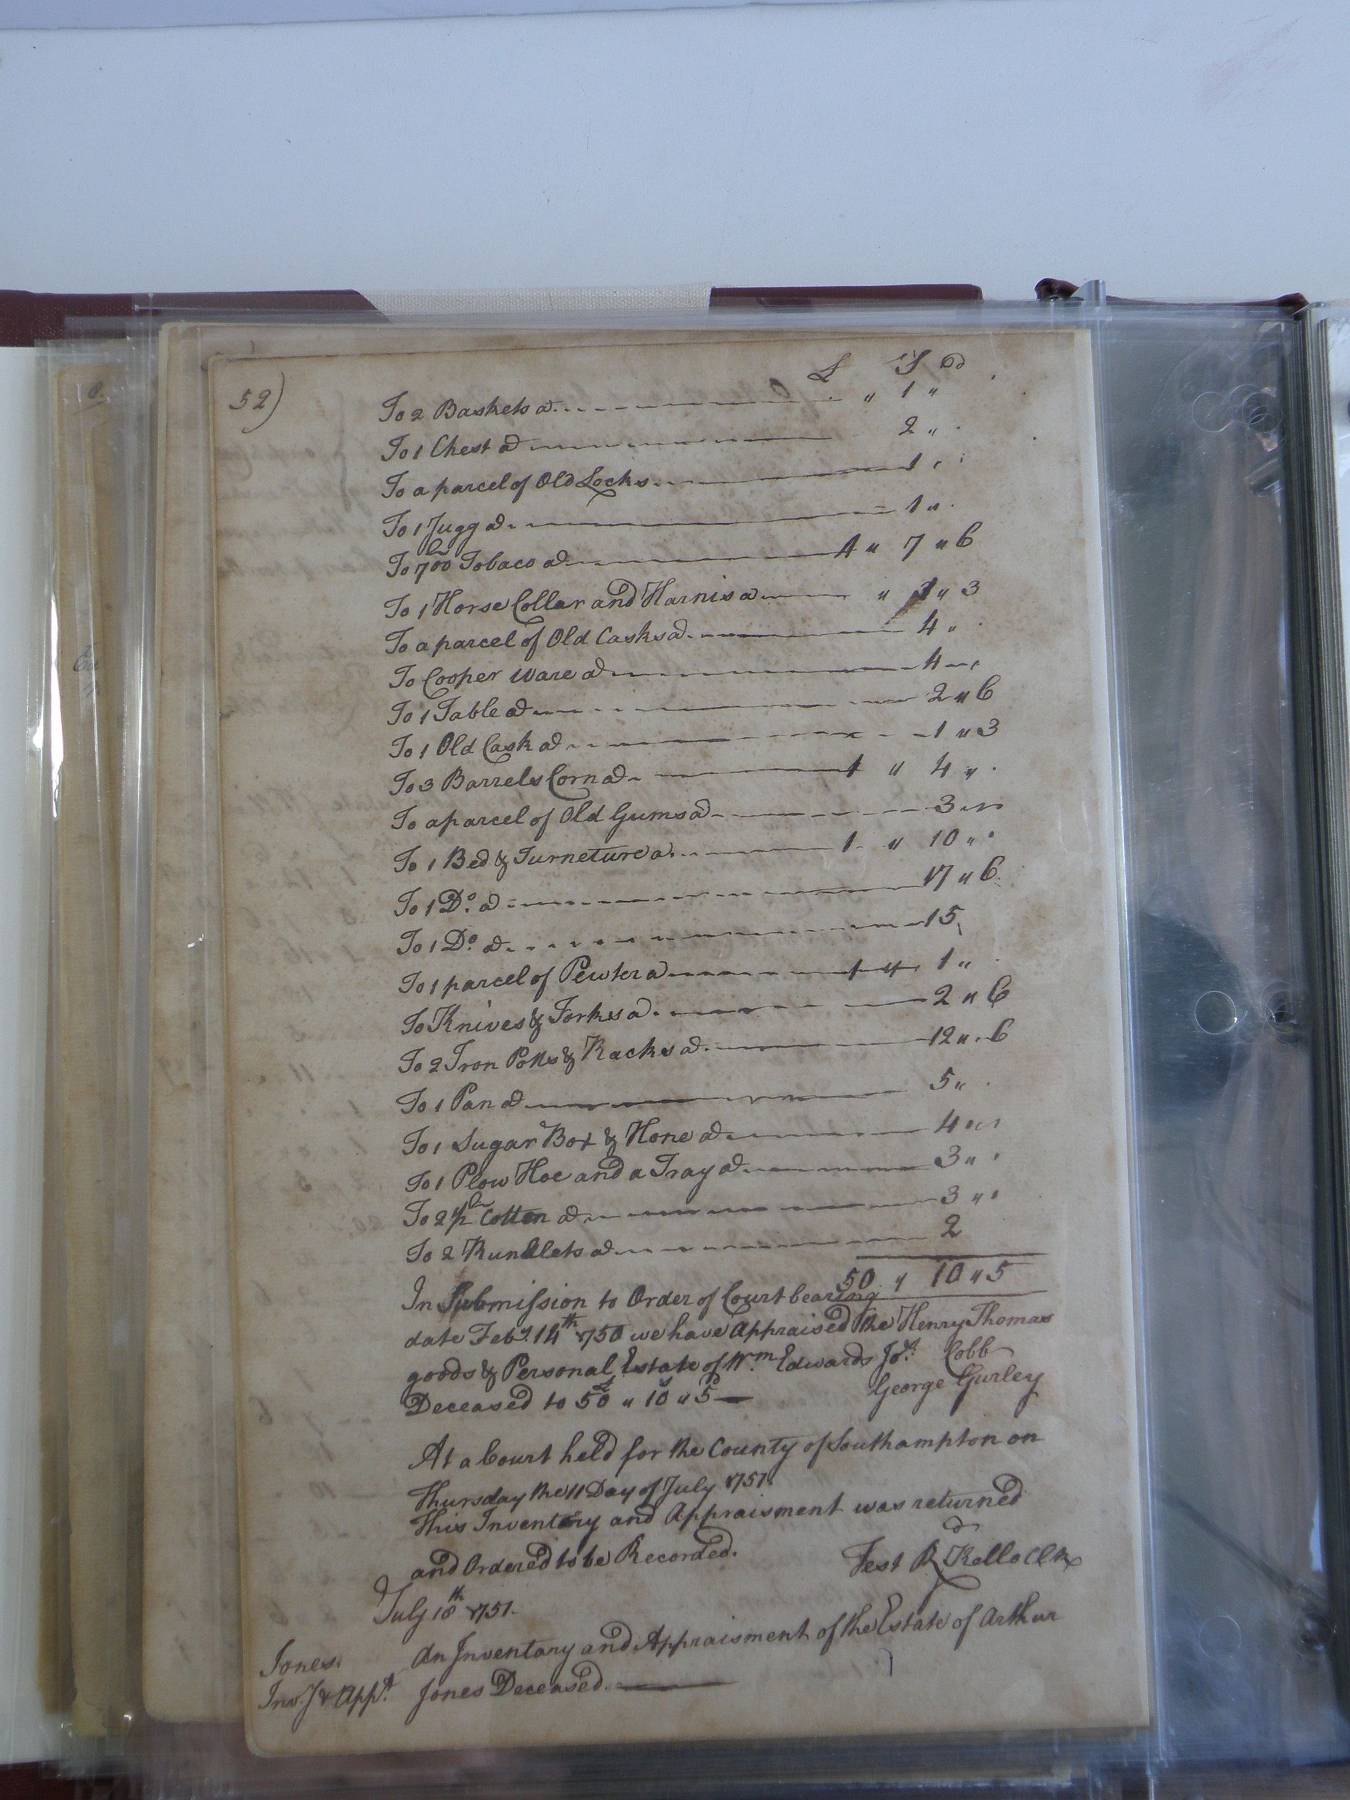 52)
£ S D
To 2 Baskets a " 1 "
To 1 Chest a 2 "
To a parcel of Old Locks 1 "
To 1 Jugg a 1 "
To 700 Tobaco a 4 " 7 " 6
To 1 Horse Collar and Harnis a " 1 " 3
To a parcel of Old Casks a 4 "
To Cooper Ware a 4 "
To 1 Table a 2 " 6
To 1 Old Cask a 1 " 3
To 3 Barrels Corn a 1 " 4 "
To a parcel of Old Gums a 3 "
To 1 Bed & Furneture a 1 " 10 "
To 1 Do. a 17 " 6
To 1 Do. a 15
To 1 parcel of Pewter a 1 " 1 "
To Knives & Forks a 2 " 6
To 2 Iron Potts & Racks a 12 " 6
To 1 Pan a 5 "
To 1 Sugar Box & Hone a 4 "
To 1 Plow Hoe and a Tray a 3 "
To 2 1/2 lb Cotten a 3 "
To 2 Rundlets a 2
50 " 10 " 5
In Submission to Order of Court bearing
date Feby. 14th 1750 we have Appraised the Henry Thomas
goods & Personal Estate of Wm Edwards Jos. Cobb
Deceased to 50 " 10 " 5 George Gurley
At a Court held for the County of Southampton on
Thursday the 11 Day of July 1751.
This Inventory and Appraisment was returned
and Ordered to be Recorded.
Test Rd Kello Clk
July 18th 1751.
Jones. An Inventory and Appraisment of the Estate of Arthur
Invy & Appt. Jones Deceased.